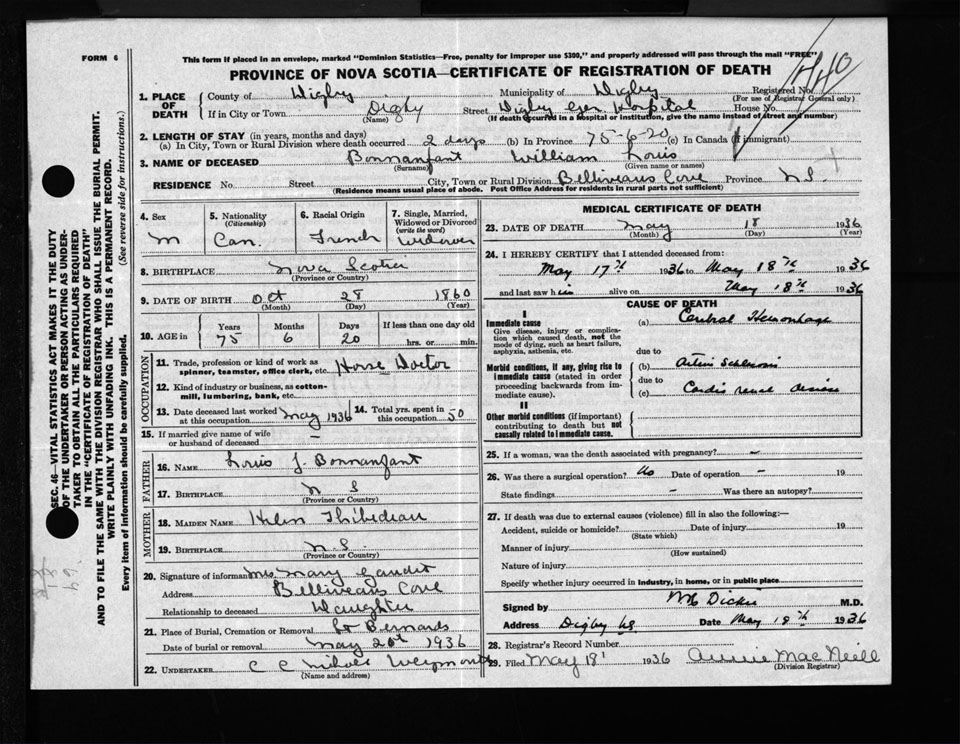 FORM 6
This form if placed in an envelope, marked "Dominion Statistics—Free, penalty for improper use $300," and properly addressed will pass through the mail "FREE"
440
PROVINCE OF NOVA SCOTIA—CERTIFICATE OF REGISTRATION OF DEATH
1. PLACE OF DEATH
County of Digby Municipality of Digby Registered No.
(For use of Registrar General only)
If in City or Town Digby Street Digby Gen Hospital House No.
(Name) (If death occurred in a hospital or institution, give the name instead of street and number)
2. LENGTH OF STAY (in years, months and days)
(a) In City, Town or Rural Division where death occurred 2 days (b) In Province 75-6-20 (c) In Canada (if immigrant)
3. NAME OF DECEASED Bonnanfant William Louis
(Surname) (Given name or names)
RESIDENCE No. Street City, Town or Rural Division Belliveaus Cove Province N.S.
(Residence means usual place of abode. Post Office Address for residents in rural parts not sufficient)
4. Sex M
5. Nationality (Citizenship) Can.
6. Racial Origin French
7. Single, Married, Widowed or Divorced (write the word) Widower
8. BIRTHPLACE Nova Scotia
(Province or Country)
9. DATE OF BIRTH Oct 28 1860
(Month) (Day) (Year)
10. AGE in Years Months Days If less than one day old
75 6 20 hrs. or min.
OCCUPATION
11. Trade, profession or kind of work as spinner, teamster, office clerk, etc. Horse Doctor
12. Kind of industry or business, as cotton-mill, lumbering, bank, etc.
13. Date deceased last worked at this occupation May 1936
14. Total yrs. spent in this occupation 50
15. If married give name of wife or husband of deceased —
FATHER
16. NAME Louis J Bonnanfant
17. BIRTHPLACE N S
(Province or Country)
MOTHER
18. MAIDEN NAME Helen Thibedeau
19. BIRTHPLACE N.S.
(Province or Country)
20. Signature of informant Mrs Mary Gaudet
Address Belliveaus Cove
Relationship to deceased Daughter
21. Place of Burial, Cremation or Removal St Bernards
Date of burial or removal May 20th 1936
22. UNDERTAKER C C Weymouth
(Name and address)
MEDICAL CERTIFICATE OF DEATH
23. DATE OF DEATH May 18 1936
(Month) (Day) (Year)
24. I HEREBY CERTIFY that I attended deceased from:
May 17th 1936 to May 18th 1936
and last saw him alive on May 18th 1936
CAUSE OF DEATH
I
Immediate cause
Give disease, injury or complication which caused death, not the mode of dying, such as heart failure, asphyxia, asthenia, etc.
(a) Cerebral Hemorrhage
due to
Morbid conditions, if any, giving rise to immediate cause (stated in order proceeding backwards from immediate cause).
(b) Arterio Sclerosis
due to
(c) Cardio renal disease
II
Other morbid conditions (if important) contributing to death but not causally related to immediate cause.
25. If a woman, was the death associated with pregnancy? —
26. Was there a surgical operation? No Date of operation — 19
State findings — Was there an autopsy?
27. If death was due to external causes (violence) fill in also the following:—
Accident, suicide or homicide? Date of injury 19
(State which)
Manner of injury
(How sustained)
Nature of injury
Specify whether injury occurred in industry, in home, or in public place
Signed by Dickie M.D.
Address Digby NS Date May 18th 1936
28. Registrar's Record Number
29. Filed May 18 1936 Annie MacNeill
(Division Registrar)
SEC. 46—VITAL STATISTICS ACT MAKES IT THE DUTY
OF THE UNDERTAKER OR PERSON ACTING AS UNDER-
TAKER TO OBTAIN ALL THE PARTICULARS REQUIRED
IN THE "CERTIFICATE OF REGISTRATION OF DEATH"
AND TO FILE THE SAME WITH THE DIVISION REGISTRAR WHO SHALL ISSUE THE BURIAL PERMIT.
WRITE PLAINLY WITH UNFADING INK. THIS IS A PERMANENT RECORD.
Every item of information should be carefully supplied. (See reverse side for instructions.)